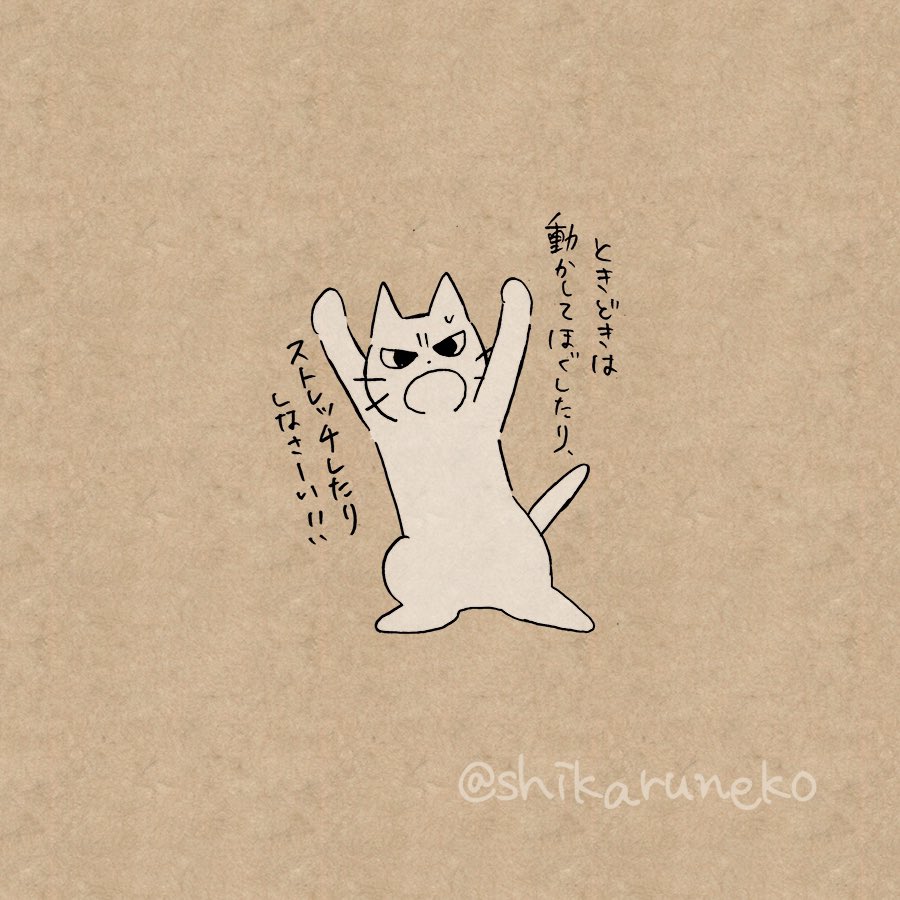 ときどきは
動かしてほぐしたり、
ストレッチしたり
しなさーい!!!
@shikaruneko